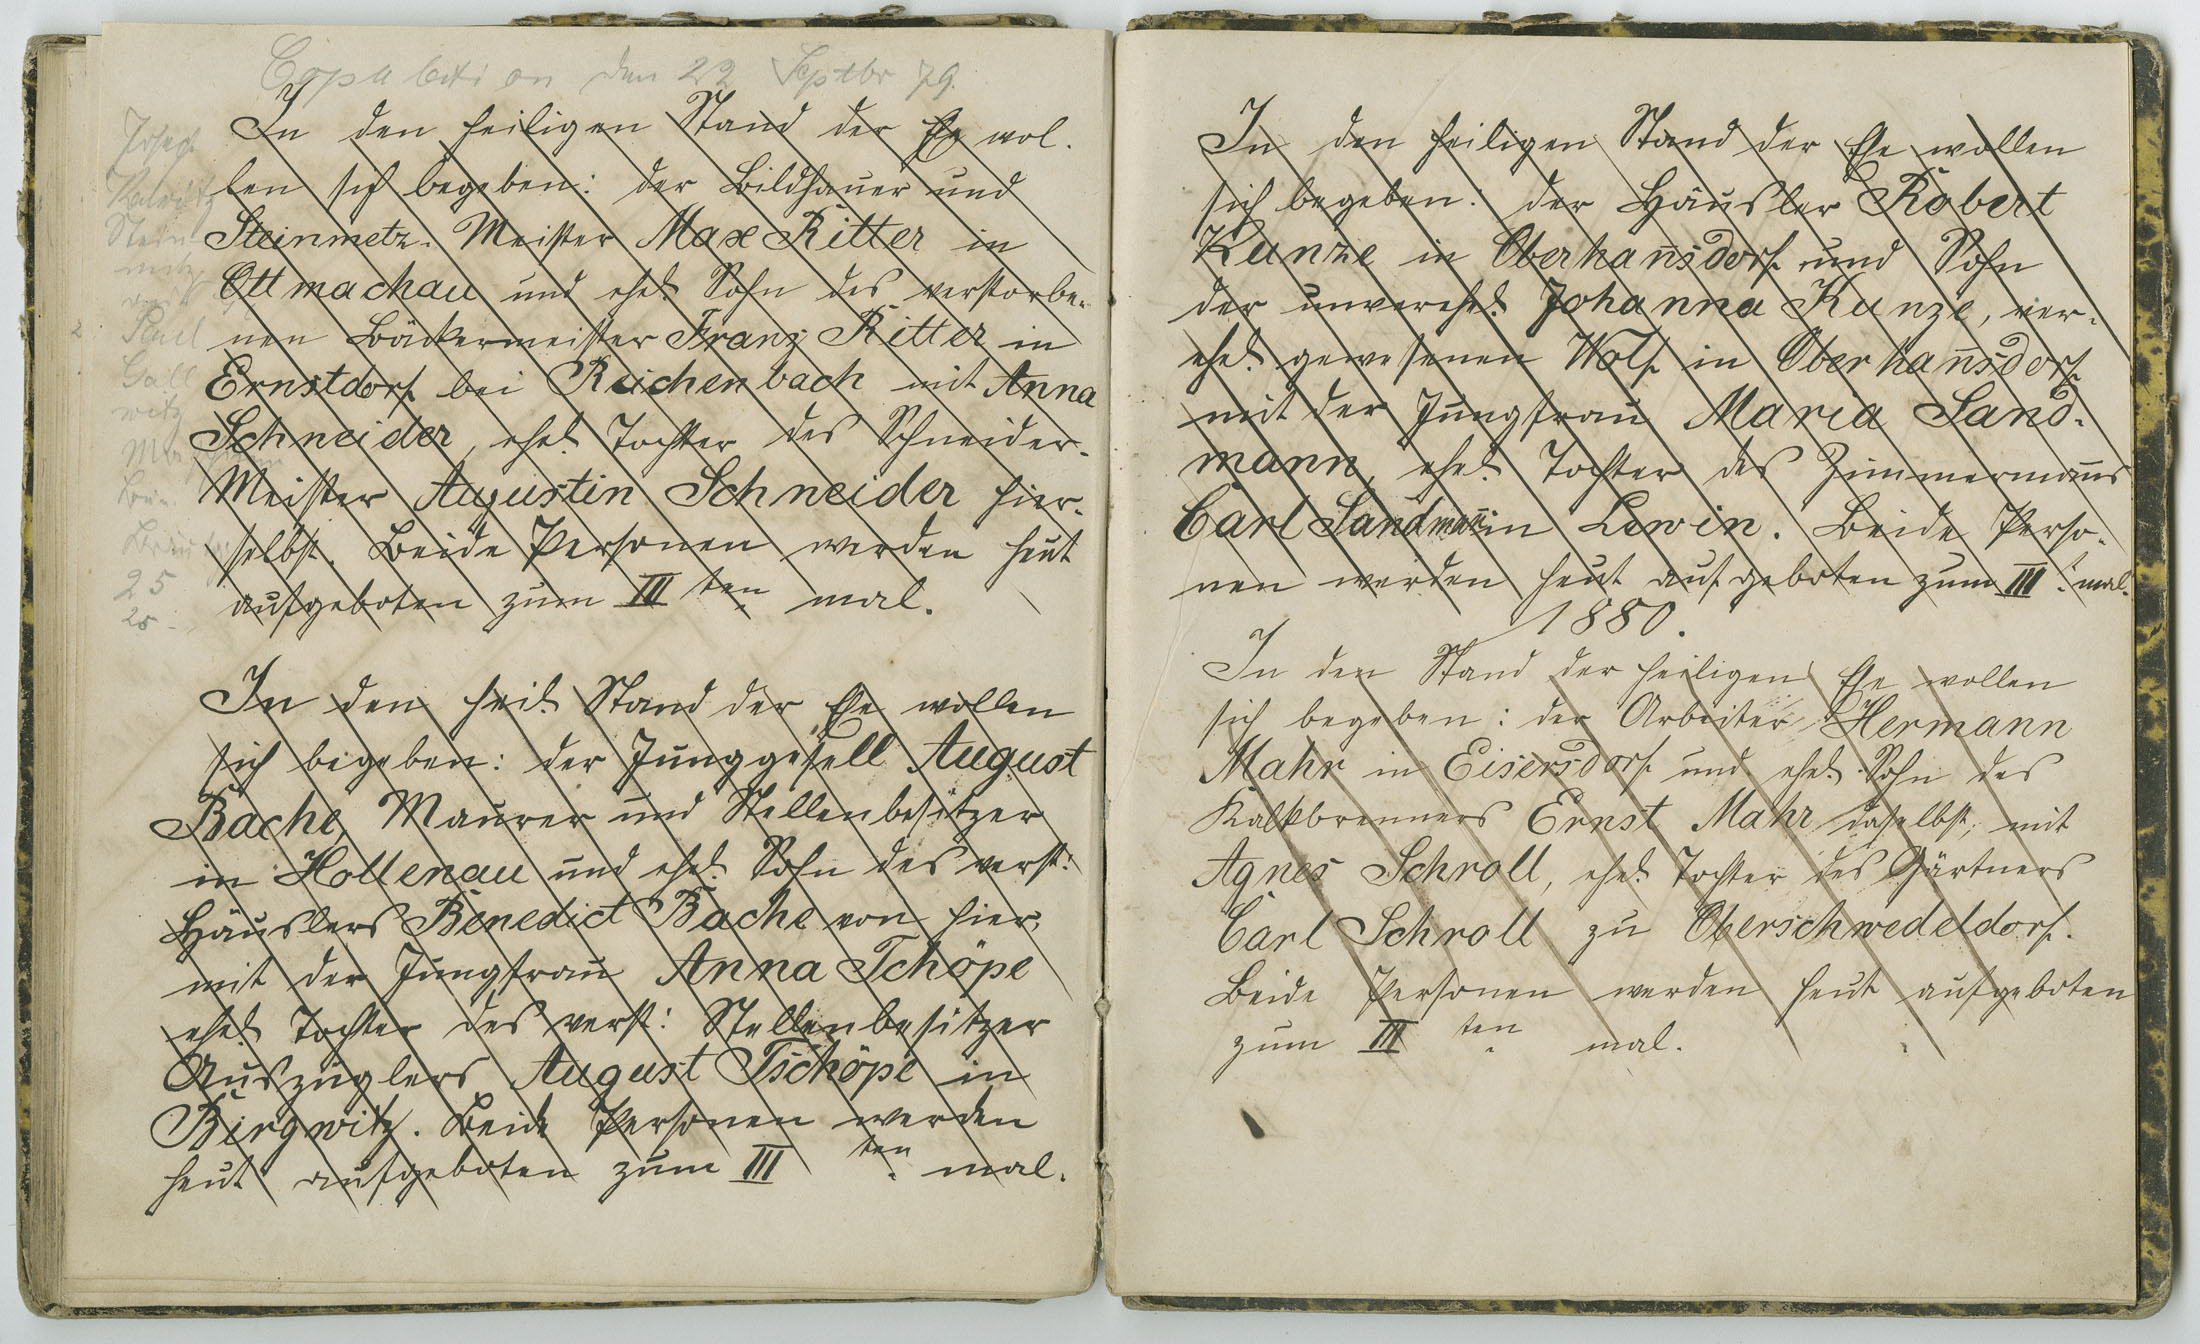 Copulation den 22 Septbr 79.
In den heiligen Stand der Ehe wol-
len sich begeben: der Bildhauer und
Steinmetz-Meister Max Ritter in
Ottmachau und ehel. Sohn des verstorbe-
nen Bäckermeister Franz Ritter in
Ernstdorf bei Reichenbach mit Anna
Schneider, ehel. Tochter des Schneider-
Meister Augustin Schneider hier-
selbst. Beide Personen werden heut
aufgeboten zum III ten mal.
Joseph
Stein-
metz
Paul
25
In den heil. Stand der Ehe wollen
sich begeben: der Junggesell August
Bache, Maurer und Stellenbesitzer
in Hollenau und ehel. Sohn des verst:
Häuslers Benedict Bache von hier,
mit der Jungfrau Anna Tschöpe
ehel. Tochter des verst: Stellenbesitzer
Auszüglers August Tschöpe in
Birgwitz. Beide Personen werden
heut aufgeboten zum III ten mal.
In den heiligen Stand der Ehe wollen
sich begeben: der Häusler Robert
Kunze in Oberhan̄sdorf und Sohn
der unverehel. Johanna Kunze, ver-
ehel. gewesenen Wolf in Oberhan̄sdorf
mit der Jungfrau Maria Sand-
mann, ehel. Tochter des Zimmerman̄s
Carl Sandman̄ in Lewin. Beide Perso-
nen werden heut aufgeboten zum III. mal.
1880.
In den Stand der heiligen Ehe wollen
sich begeben: der Arbeiter Hermann
Mahr in Eisersdorf und ehel. Sohn des
Kalkbrenners Ernst Mahr daselbst, mit
Agnes Schroll, ehel. Tochter des Gärtners
Carl Schroll zu Oberschwedeldorf.
Beide Personen werden heut aufgeboten
zum III ten mal.